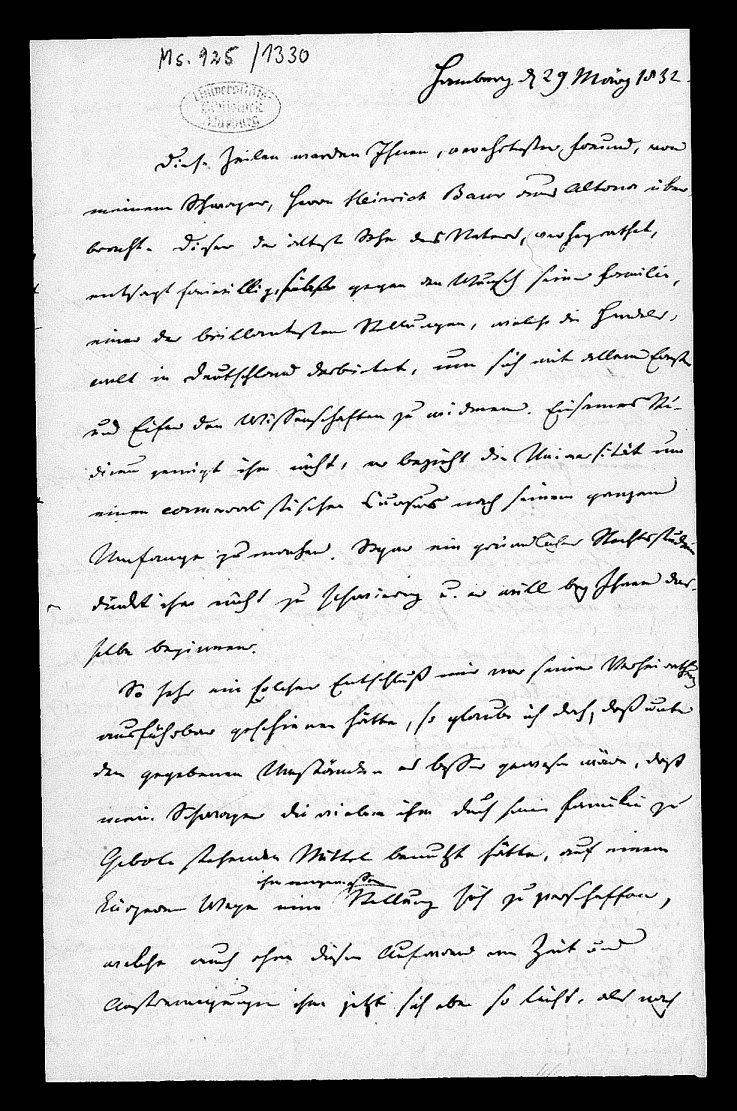 Ms. 925 / 1330
Universitäts-
Bibliothek
Marburg
Hamburg d 29 März 1832.
Diese Zeilen werden Ihnen, verehrtester Freund, von
meinem Schwager, Herrn Heinrich Baur aus Altona über-
bracht. Dieser der älteste Sohn des Vaters, verheyrathet,
entsagt freiwillig, selbst gegen den Wunsch seiner Familie,
einer der brillantesten Stellungen, welche die Handels-
welt in Deutschland darbietet, um sich mit allem Ernst
und Eifer den Wissenschaften zu widmen. Einsames Stu-
diren genügt ihm nicht, er bezieht die Universität um
einen cameralistischen Cursus nach seinem ganzen
Umfange zu machen. Sogar ein gründliches Rechtsstudium
dünkt ihm nicht zu schwierig u. er will bey Ihnen das-
selbe beginnen.
So sehr ein solcher Entschluß mir vor seiner Verheirathung
ausführbar geschienen hätte, so glaube ich doch, daß unter
den gegebenen Umständen es besser gewesen wäre, daß
mein Schwager die vielen ihm durch seine Familie zu
Gebote stehenden Mittel benutzt hätte, auf einem
kürzeren Wege eine ihm angemessene Stellung sich zu verschaffen,
welche auch ohne diesen Aufwand an Zeit und
Anstrengungen ihm jetzt sich eben so leicht, als nach